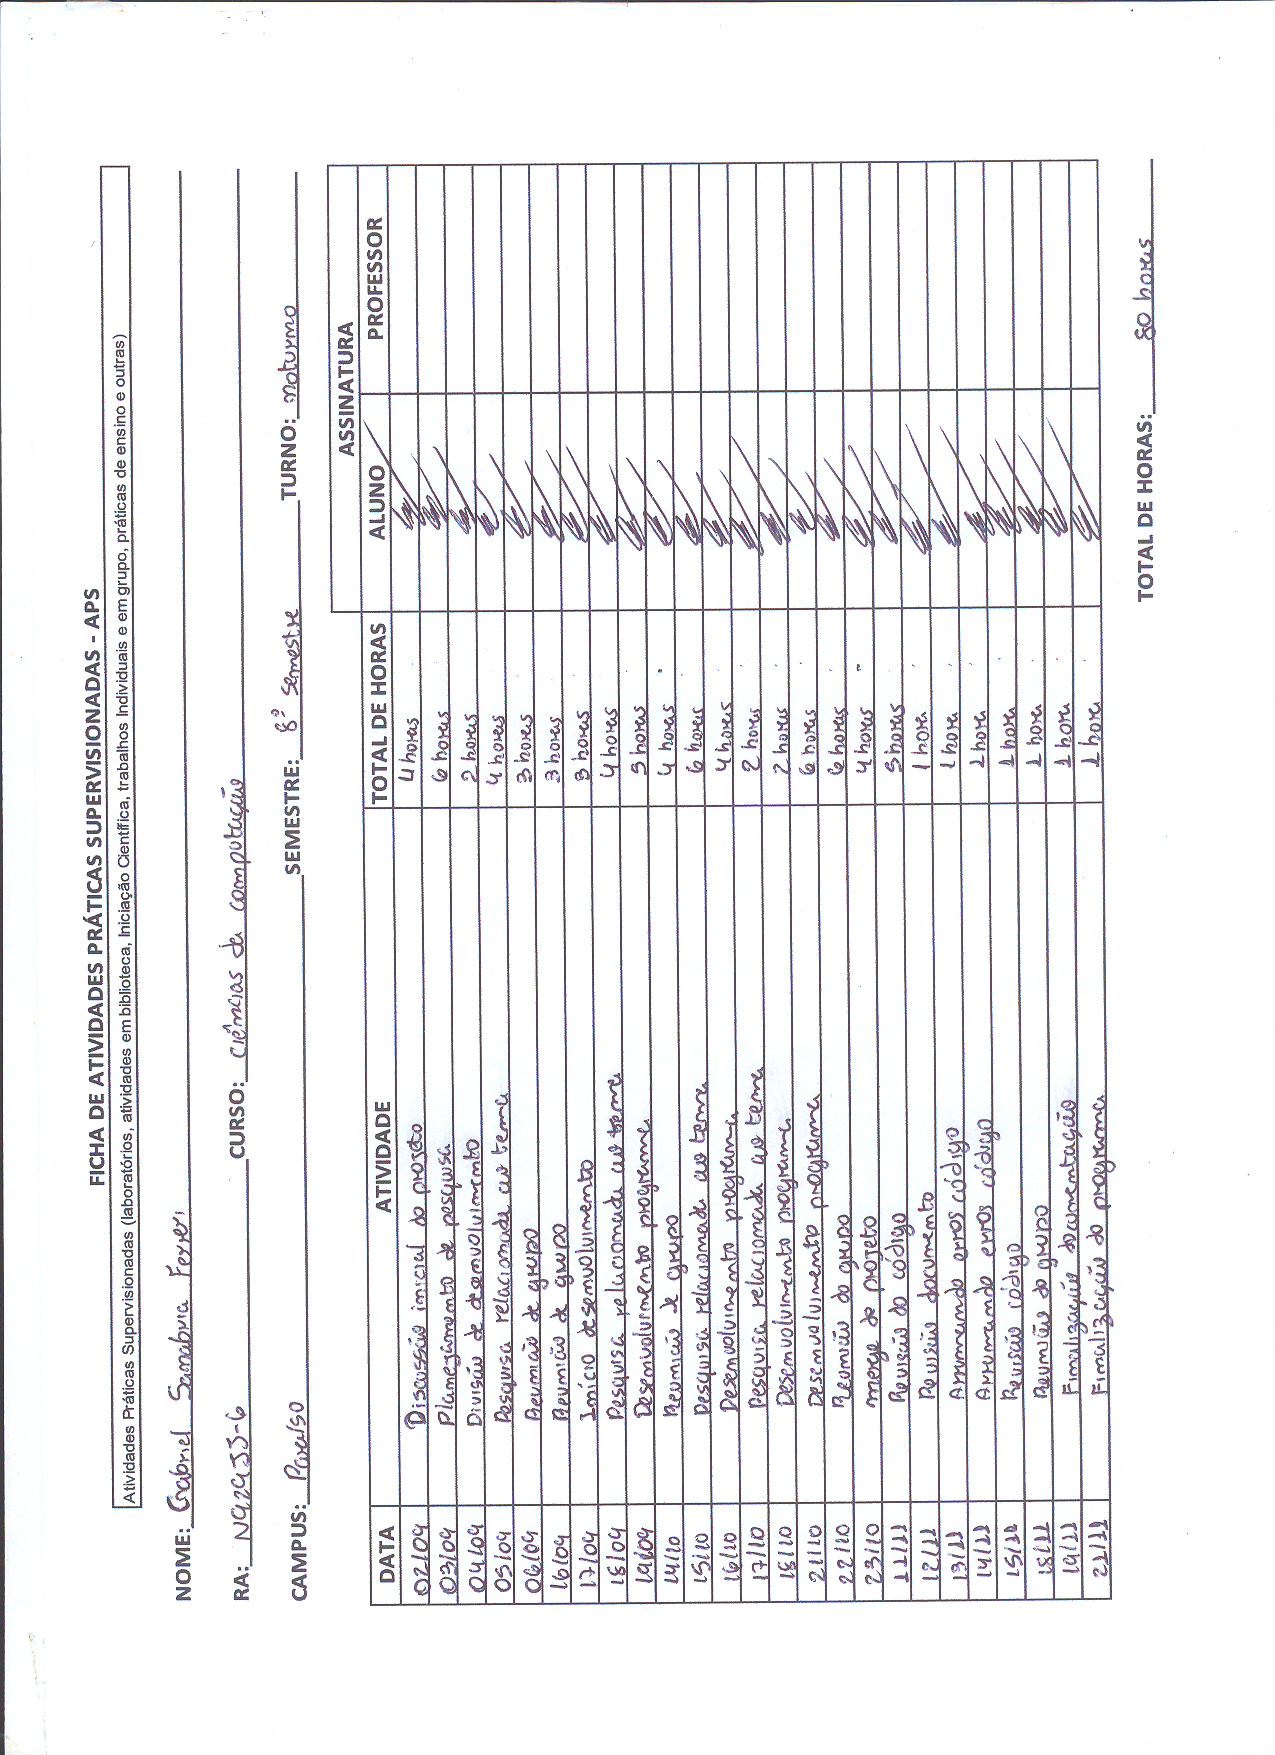 FICHA DE ATIVIDADES PRÁTICAS SUPERVISIONADAS - APS
Atividades Práticas Supervisionadas (laboratórios, atividades em biblioteca, Iniciação Científica, trabalhos Individuais e em grupo, práticas de ensino e outras)
NOME: Gabriel Sanabria Ferreri
RA: N92953-6 CURSO: Ciências da computação
CAMPUS: Paraíso SEMESTRE: 8º semestre TURNO: noturno
DATA ATIVIDADE TOTAL DE HORAS ASSINATURA
ALUNO PROFESSOR
02/09 Discussão inicial do projeto 4 horas
03/09 Planejamento de pesquisa 6 horas
04/09 Divisão de desenvolvimento 2 horas
05/09 Pesquisa relacionada ao tema 4 horas
06/09 Reunião de grupo 3 horas
16/09 Reunião de grupo 3 horas
17/09 Início desenvolvimento 3 horas
18/09 Pesquisa relacionada ao tema 4 horas
19/09 Desenvolvimento programa 5 horas
14/10 Reunião de grupo 4 horas
15/10 Pesquisa relacionada ao tema 6 horas
16/10 Desenvolvimento programa 4 horas
17/10 Pesquisa relacionada ao tema 2 horas
18/10 Desenvolvimento programa 2 horas
21/10 Desenvolvimento programa 6 horas
22/10 Reunião do grupo 6 horas
23/10 merge do projeto 4 horas
11/11 Revisão do código 5 horas
12/11 Revisão documento 1 hora
13/11 Arrumando erros código 1 hora
14/11 Arrumando erros código 1 hora
15/11 Revisão código 1 hora
18/11 Reunião do grupo 1 hora
19/11 Finalização documentação 1 hora
21/11 Finalização do programa 1 hora
TOTAL DE HORAS: 80 horas